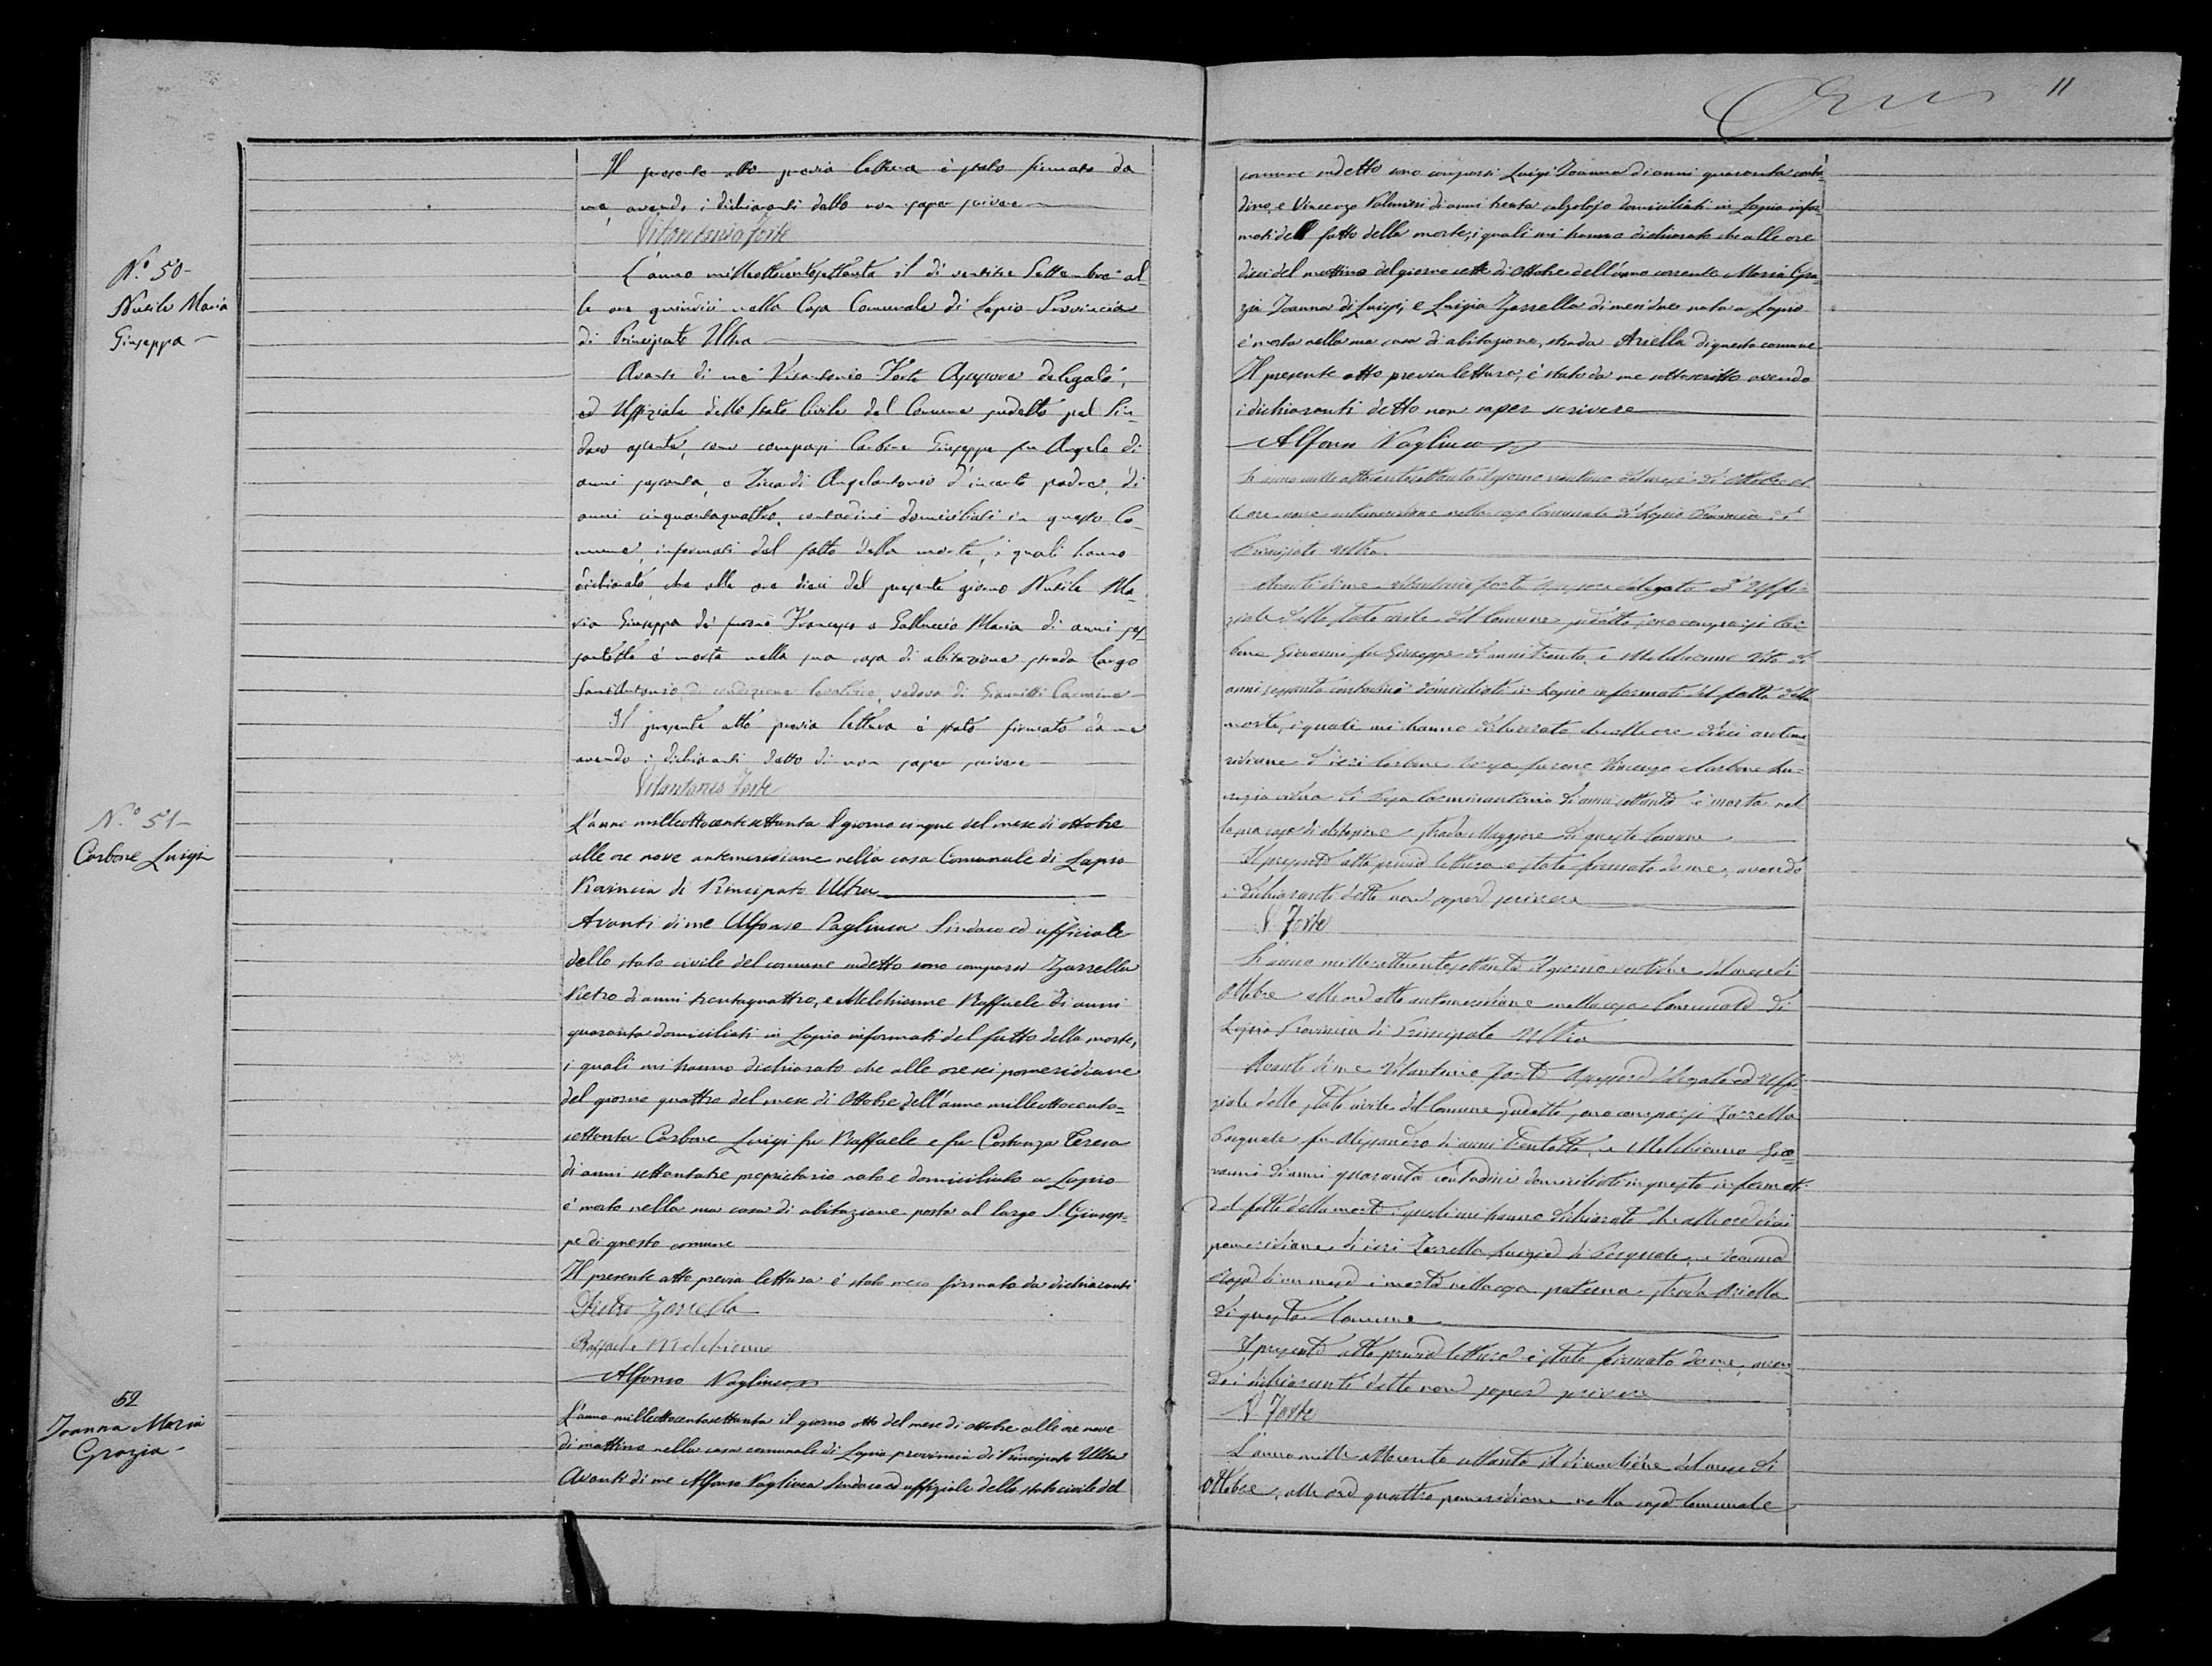 Il presente atto previa lettura è stato firmato da
me, avendo i dichiaranti detto non saper scrivere
Vitantonio Forte
N.° 50-
Nusile Maria
Giuseppa
L'anno milleottocentosettanta il dì ventitre Settembre al-
le ore quindici nella Casa Comunale di Lapio Provincia
di Principato Ultra
Avanti di me Vitantonio Forte Assessore delegato,
ed Uffiziale dello Stato Civile del Comune sudetto pel Sin-
daco assente, sono comparsi Carbone Giuseppe fu Angelo di
anni sessanta, e Ziccardi Angelantonio d'incerto padre, di
anni cinquantaquattro, contadini domiciliati in questo Co-
mune, informati del fatto della morte, i quali hanno
dichiarato, che alle ore dieci del presente giorno Nusile Ma-
ria Giuseppa dei furono Francesco e Galluccio Maria di anni ses-
santotto è morta nella sua casa di abitazione strada Largo
Santantonio di condizione vedova di Giannitti Carmine
Il presente atto previa lettura è stato firmato da me
avendo i dichiaranti detto di non saper scrivere
Vitantonio Forte
N.° 51-
Carbone Luigi
L'anno milleottocentosettanta il giorno cinque del mese di ottobre
alle ore nove antemeridiane nella casa Comunale di Lapio
Provincia di Principato Ultra
Avanti di me Alfonso Pagliuca Sindaco ed ufficiale
dello stato civile del comune sudetto sono comparsi Zarrella
Pietro di anni trentaquattro, e Melchionne Raffaele di anni
quaranta domiciliati in Lapio informati del fatto della morte,
i quali mi hanno dichiarato che alle ore sei pomeridiane
del giorno quattro del mese di Ottobre dell'anno milleottocento=
settanta Carbone Luigi fu Raffaele e fu Costanza Teresa
di anni settantatre proprietario nato e domiciliato a Lapio
è morto nella sua casa di abitazione posta al largo S. Giusep-
pe di questo comune
Il presente atto previa lettura è stato meco firmato da dichiaranti
Pietro Zarrella
Raffaele Melchionne
Alfonso Pagliuca
52
Ioanna Maria
Grazia-
L'anno milleottocentosettanta il giorno otto del mese di ottobre alle ore nove
di mattino nella casa comunale di Lapio provincia di Principato Ultra
Avanti di me Alfonso Pagliuca Sindaco ed uffiziale dello stato civile del
11
comune sudetto sono comparsi Luigi Ioanna di anni quaranta conta-
dino, e Vincenzo Palmieri di anni trenta calzolajo domiciliati in Lapio infor-
mati del fatto della morte, i quali mi hanno dichiarato che alle ore
dieci del mattino del giorno sette di Ottobre dell'anno corrente Maria Gra-
zia Ioanna di Luigi, e Luigia Zarrella di mesi due nata a Lapio
è morta nella sua casa di abitazione, strada Ariella di questo comune
Il presente atto previa lettura, è stato da me sottoscritto avendo
i dichiaranti detto non saper scrivere
Alfonso Pagliuca
L'anno mille ottocentosettanta il giorno ventuno del mese di Ottobre al-
le ore nove antemeridiane nella casa Comunale di Lapio Provincia di
Principato Ultra
Avanti di me Vitantonio Forte Assessore delegato ed Uffi-
ziale dello Stato civile del Comune sudetto sono comparsi Car-
bone Giovanni fu Giuseppe di anni trenta, e Melchionne Vito di
anni sessanta contadini domiciliati in Lapio informati del fatto della
morte, i quali mi hanno dichiarato che alle ore dieci anteme-
ridiane d'ieri Carbone furono Vincenzo e Carbone Lu-
vedova di di anni ottanta è morta nel
la sua casa di abitazione strada Maggiore di questo Comune
Il presente atto previa lettura è stato firmato da me, avendo
i dichiaranti detto non saper scrivere
V. Forte
L'anno mille ottocentosettanta il giorno ventidue del mese di
Ottobre alle ore otto antemeridiane nella casa Comunale di
Lapio Provincia di Principato Ultra
Avanti di me Vitantonio Forte Assessore delegato ed Uffi-
ziale dello Stato civile del Comune sudetto sono comparsi Zarrella
Pasquale fu Alessandro di anni trentotto, e Melchionno Gio-
vanni di anni quaranta contadini domiciliati in questo informati
del fatto della morte i quali mi hanno dichiarato che alle ore dieci
pomeridiane di ieri Zarrella Luigia di Pasquale, e Ioanna
di un mese è morta nella casa paterna strada Ariella
di questo Comune
Il presente atto previa lettura è stato firmato da me, aven-
do i dichiaranti detto non saper scrivere
V. Forte
L'anno mille ottocento settanta il dì ventidue del mese di
Ottobre, alle ore quattro pomeridiane nella casa Comunale